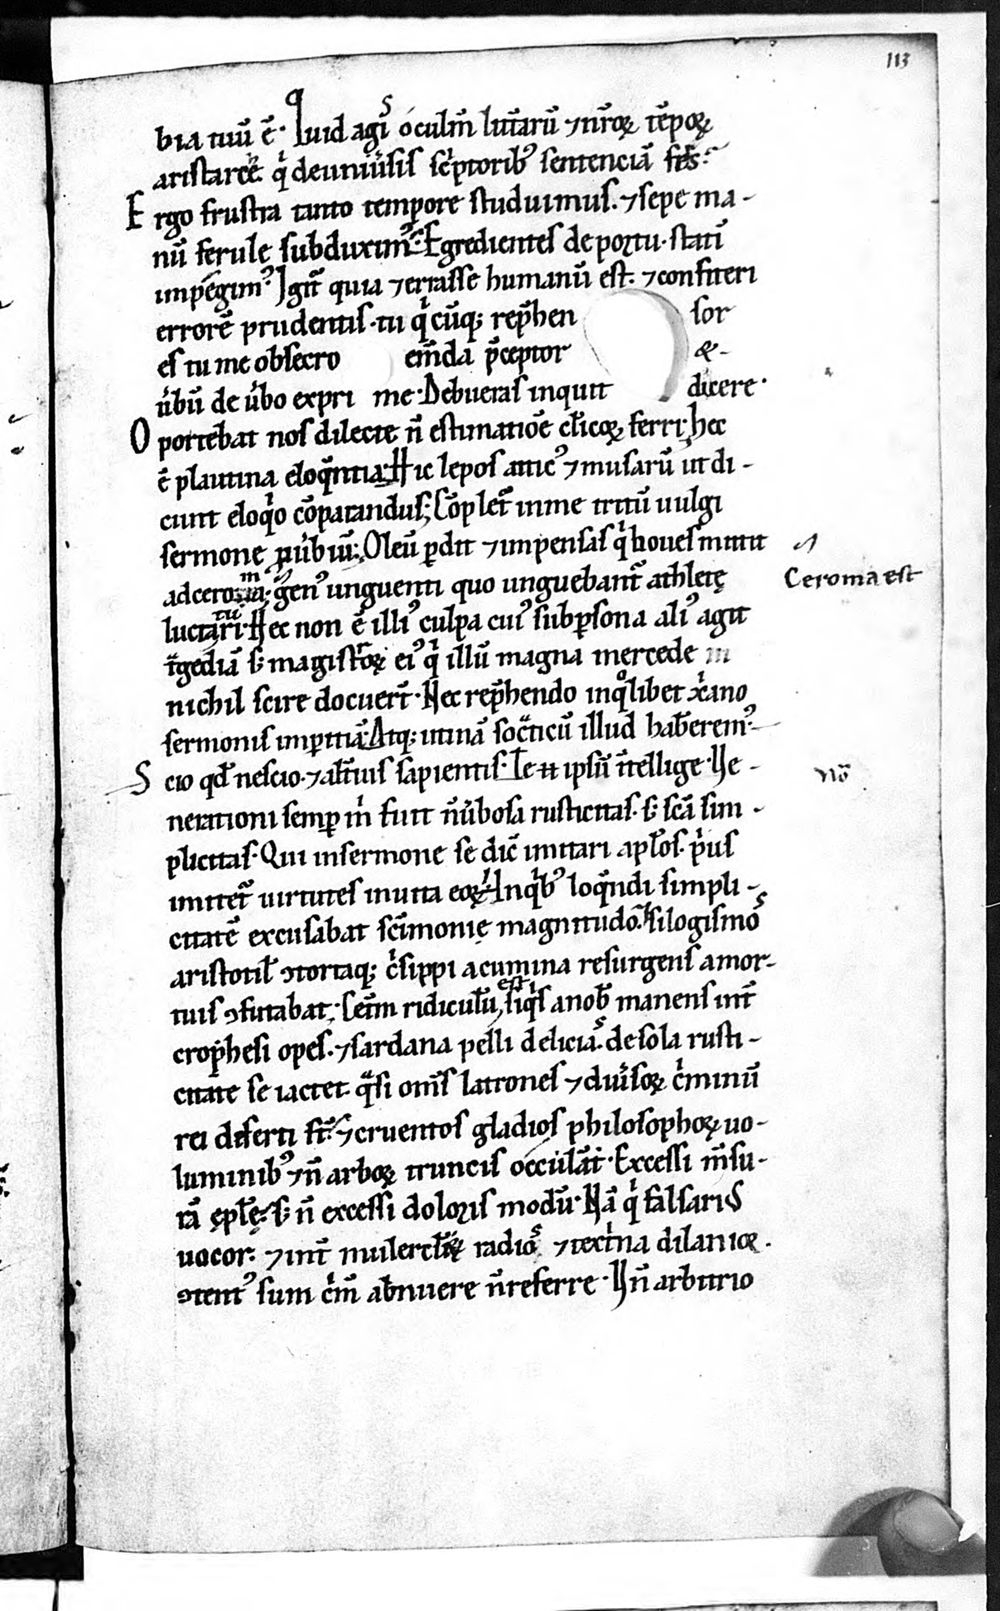 113
bia tuū ē. Quid agis̄ o culm̄ lutt̄arū ⁊ nr̄oꝝ tēpoꝝ
aristarce. q̇ de uniūsis sc̄ptorib᷒ sentenciā fers.
Ergo frustra tanto tempore studuimus. ⁊ sepe ma-
nū ferule subduxim᷒. Egredientes de portu. statī
impegim᷒. Igit̄ quia ⁊ errasse humanū est. ⁊ confiteri
errorē prudentis. tu q̇cūq; rep̄hen sor
es tu me obsecro em̄da p̄ceptor &
ūbū de ūbo expri me. Debueras inquit dicere.
Oportebat nos dilecte n̄ estimatiōe clīcoꝝ ferri. hec
ē plautina eloq̄ntia. Hic lepos attic᷒ ⁊ musarū ut di-
cunt eloq̇o cōparandus; Cōplet̄ in me tritū uulgi
sermone ꝓūbiū; Oleū ꝑdit ⁊ impensas q̇ boues mittit
ad ceroma. gen᷒ unguenti quo unguebant̄ athletę
Ceroma est
luctaturi. Hec non ē illi᷒ culpa cui᷒ sub ꝑsona ali᷒ agit
t̄gediā s; magistroꝝ ei᷒ q̇ illū magna mercede
nichil scire docuer̄t. Nec rep̄hendo in q̊libet xp̄iano
sermonis impītiā. Atq; utinā socͣticū illud haberem᷒
Scio qd̄ nescio. ⁊ alt̄ius sapientis. Te ipsū ītellige. Ve-
nō
nerationi semꝑ m̄ fuit n̄ ūbosa rusticitas. s; scā sim-
plicitas. Qui in sermone se dic̄ imitari apl̄os. ṗus
imitet̄ uirtutes in uita eoꝝ. In q̇b᷒ loq̄ndi simpli-
citatē excusabat sc̄imonię magnitudo. ⁊ silogismos
aristotil̄ ꝯtortaq; c̄sippi acumina resurgens a mor-
tuis ꝯfutabat. Cet̄m ridiculū est, si q̇s a nob̄ manens int̄
crop̄hesi opes. ⁊ sardana pelli delicias. de sola rusti-
citate se iactet. q̄si om̄s latrones ⁊ diūsoꝝ c̄minū
rei diserti st̄. ⁊ cruentos gladios philosophoꝝ uo-
luminib᷒ ⁊ n̄ arboꝝ truncis occulāt. Excessi m̄su-
rā ęplę. s; n̄ excessi doloris modū. Nā q̇ falsariS
uocor. ⁊ int̄ mulierclaꝝ radios ⁊ textrina dilanior.
ꝯtent᷒ sum c̄m̄ abnuere n̄ referre. Vn̄ arbitrio